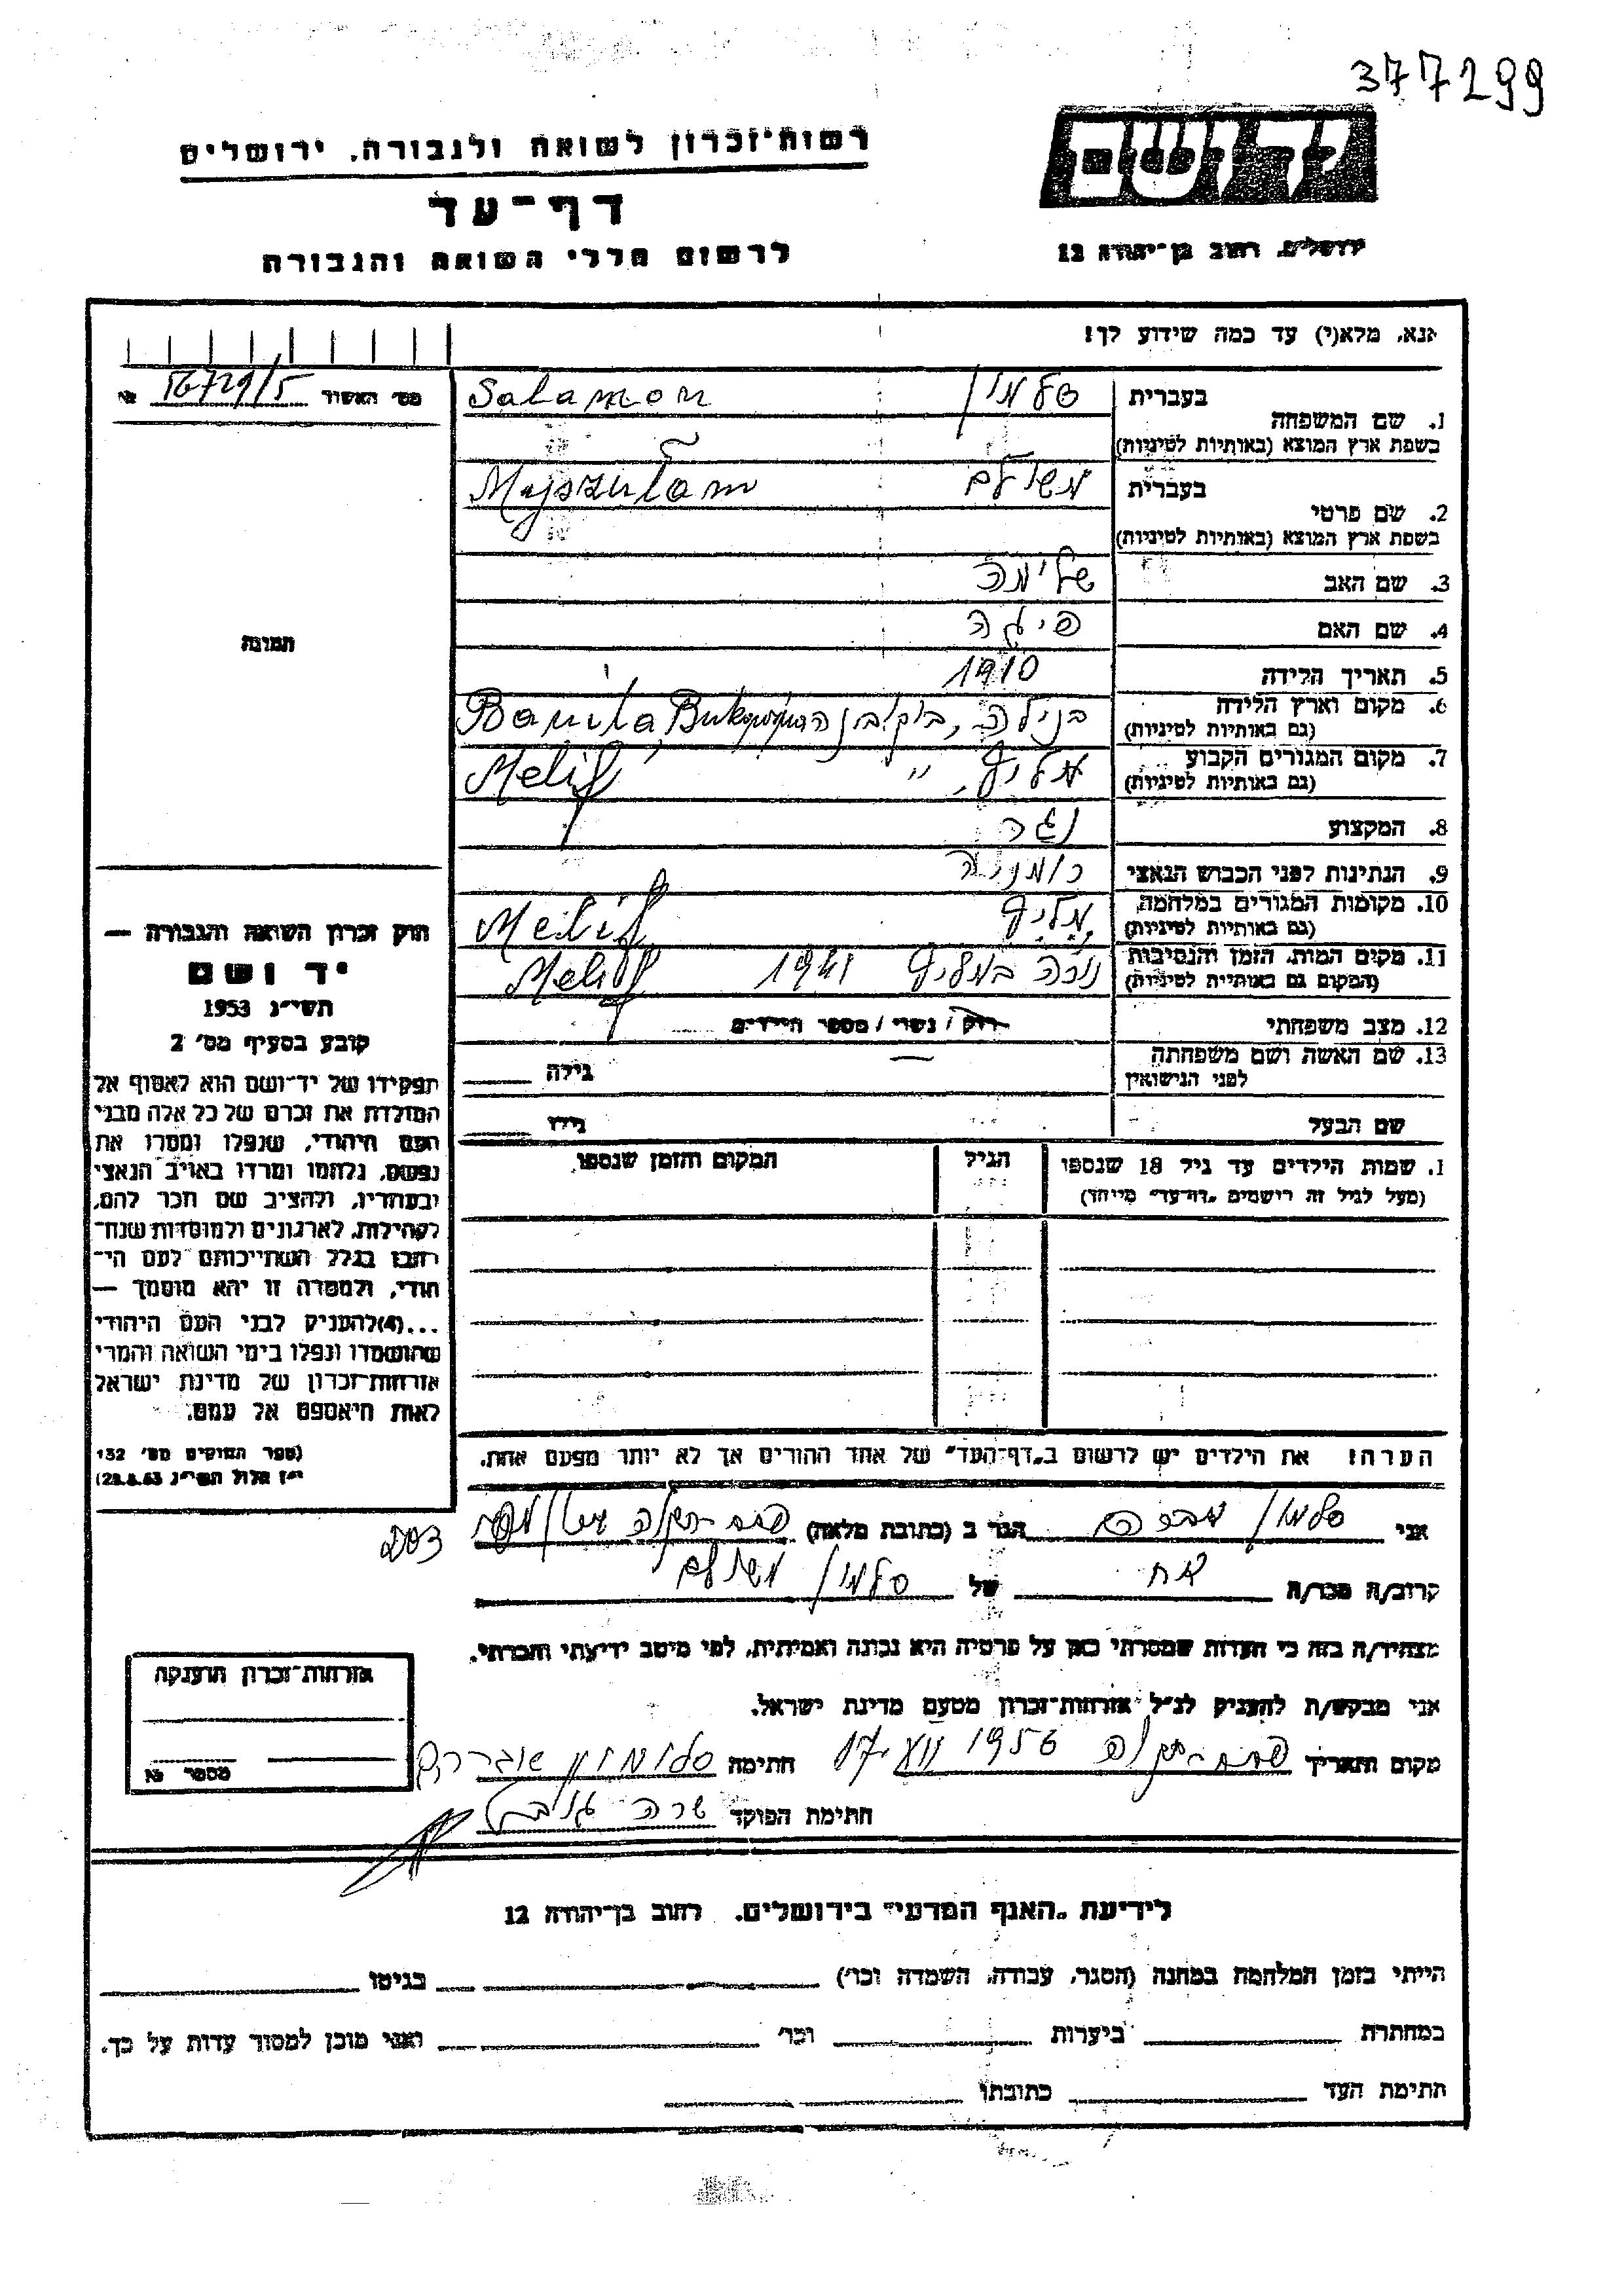 377299
יד ושם
רשות־זכרון לשואה ולגבורה, ירושלים
דף־עד
לרשום חללי השואה והגבורה
ירושלים, רחוב בן־יהודה 12
אנא, מלא(י) עד כמה שידוע לך!
מס׳ האשור 16729/5 №
תמונה
בעברית
1. שם המשפחה
בשפת ארץ המוצא (באותיות לטיניות)
סלמון Salamon
בעברית
2. שם פרטי
בשפת ארץ המוצא (באותיות לטיניות)
משולם Majszulam
3. שם האב שלימה
4. שם האם פיגה
5. תאריך הלידה 1910
6. מקום וארץ הלידה
(גם באותיות לטיניות)
בנילה, Banila,
7. מקום המגורים הקבוע
(גם באותיות לטיניות)
מליף, " Melif
8. המקצוע נגר
9. הנתינות לפני הכבוש הנאצי רומניה
10. מקומות המגורים במלחמה
(גם באותיות לטיניות)
מליף Melif
11. מקום המות, הזמן והנסיבות
(המקום גם באותיות לטיניות)
נורה במליף 1941 Melif
12. מצב משפחתי רוק / נשוי / מספר הילדים
13. שם האשה ושם משפחתה
לפני הנישואין
— גילה
שם הבעל גילו
1. שמות הילדים עד גיל 18 שנספו
(מעל לגיל זה רישמים "דף־עד" מייחד)
הגיל
המקום והזמן שנספו
הערה! את הילדים יש לרשום ב"דף־העד" של אחד ההורים אך לא יותר מפעם אחת.
חוק זכרון השואה והגבורה —
יד ושם
תשי״ג 1953
קובע בסעיף מס׳ 2
תפקידו של יד־ושם הוא לאסוף אל
המולדת את זכרם של כל אלה מבני
העם היהודי, שנפלו ומסרו את
נפשם, נלחמו ומרדו באויב הנאצי
ובעוזריו, ולהציב שם וזכר להם,
לקהילות, לארגונים ולמוסדות שנח־
רבו בגלל השתייכותם לעם הי־
הודי, ולמטרה זו יהא מוסמך —
...(4)להעניק לבני העם היהודי
שהושמדו ונפלו בימי השואה והמרי
אזרחות־זכרון של מדינת ישראל
לאות היאספם אל עמם.
(ספר החוקים מס׳ 132
י״ז אלול תשי״ג 28.8.53)
אני סלמון הגר ב (כתובת מלאה) פתח־תקוה
203
קרוב/ה מכר/ה אח של סלמון משולם
מצהיר/ה בזה כי העדות שמסרתי כאן על פרטיה היא נכונה ואמיתית, לפי מיטב ידיעתי והכרתי.
אני מבקש/ת להעניק לנ״ל אזרחות־זכרון מטעם מדינת ישראל.
מקום ותאריך פתח־תקוה 1956 חתימה סלומון
חתימת הפוקד שרה
אזרחות־זכרון הוענקה
מספר №
לידיעת "האגף המדעי" בירושלים. רחוב בן־יהודה 12
הייתי בזמן המלחמה במחנה (הסגר, עבודה, השמדה וכו׳) בגיטו
במחתרת ביערות וכו׳ ואני מוכן למסור עדות על כך.
חתימת העד כתובתו